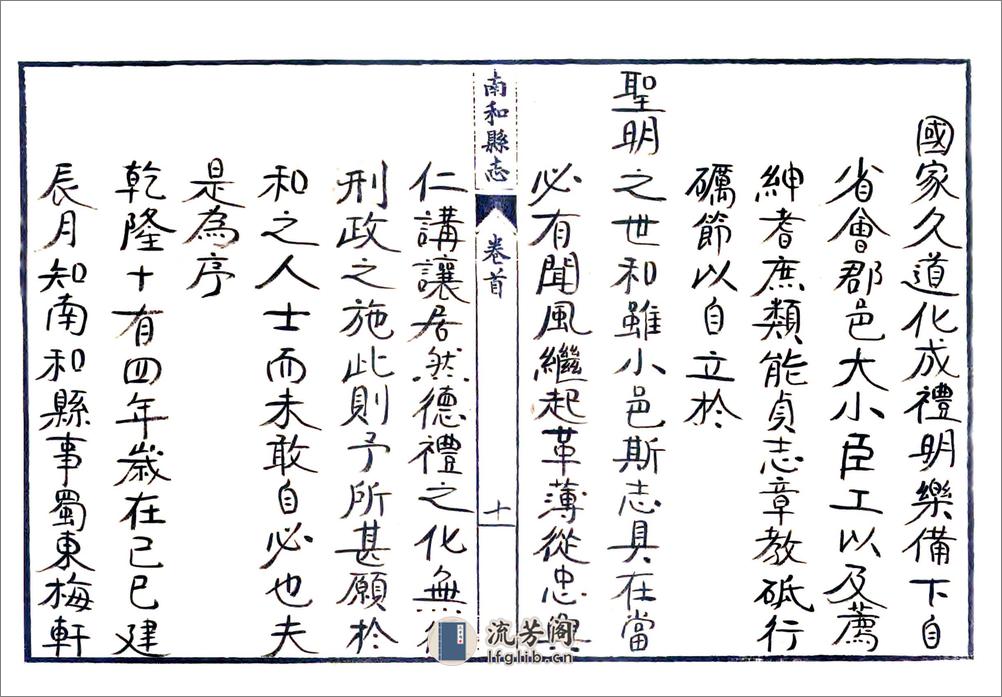 國家久道化成禮明樂備下自
省會郡邑大小臣工以及薦
紳耆庶類能貞志章教砥行
礪節以自立於
聖明之世和雖小邑斯志具在當
必有聞風繼起革薄從忠興
南和縣志
卷首
十
仁講讓居然德禮之化無
刑政之施此則予所甚願於
和之人士而未敢自必也夫
是為序
乾隆十有四年歲在己巳建
辰月知南和縣事蜀東梅軒
流芳阁
lfglib.cn